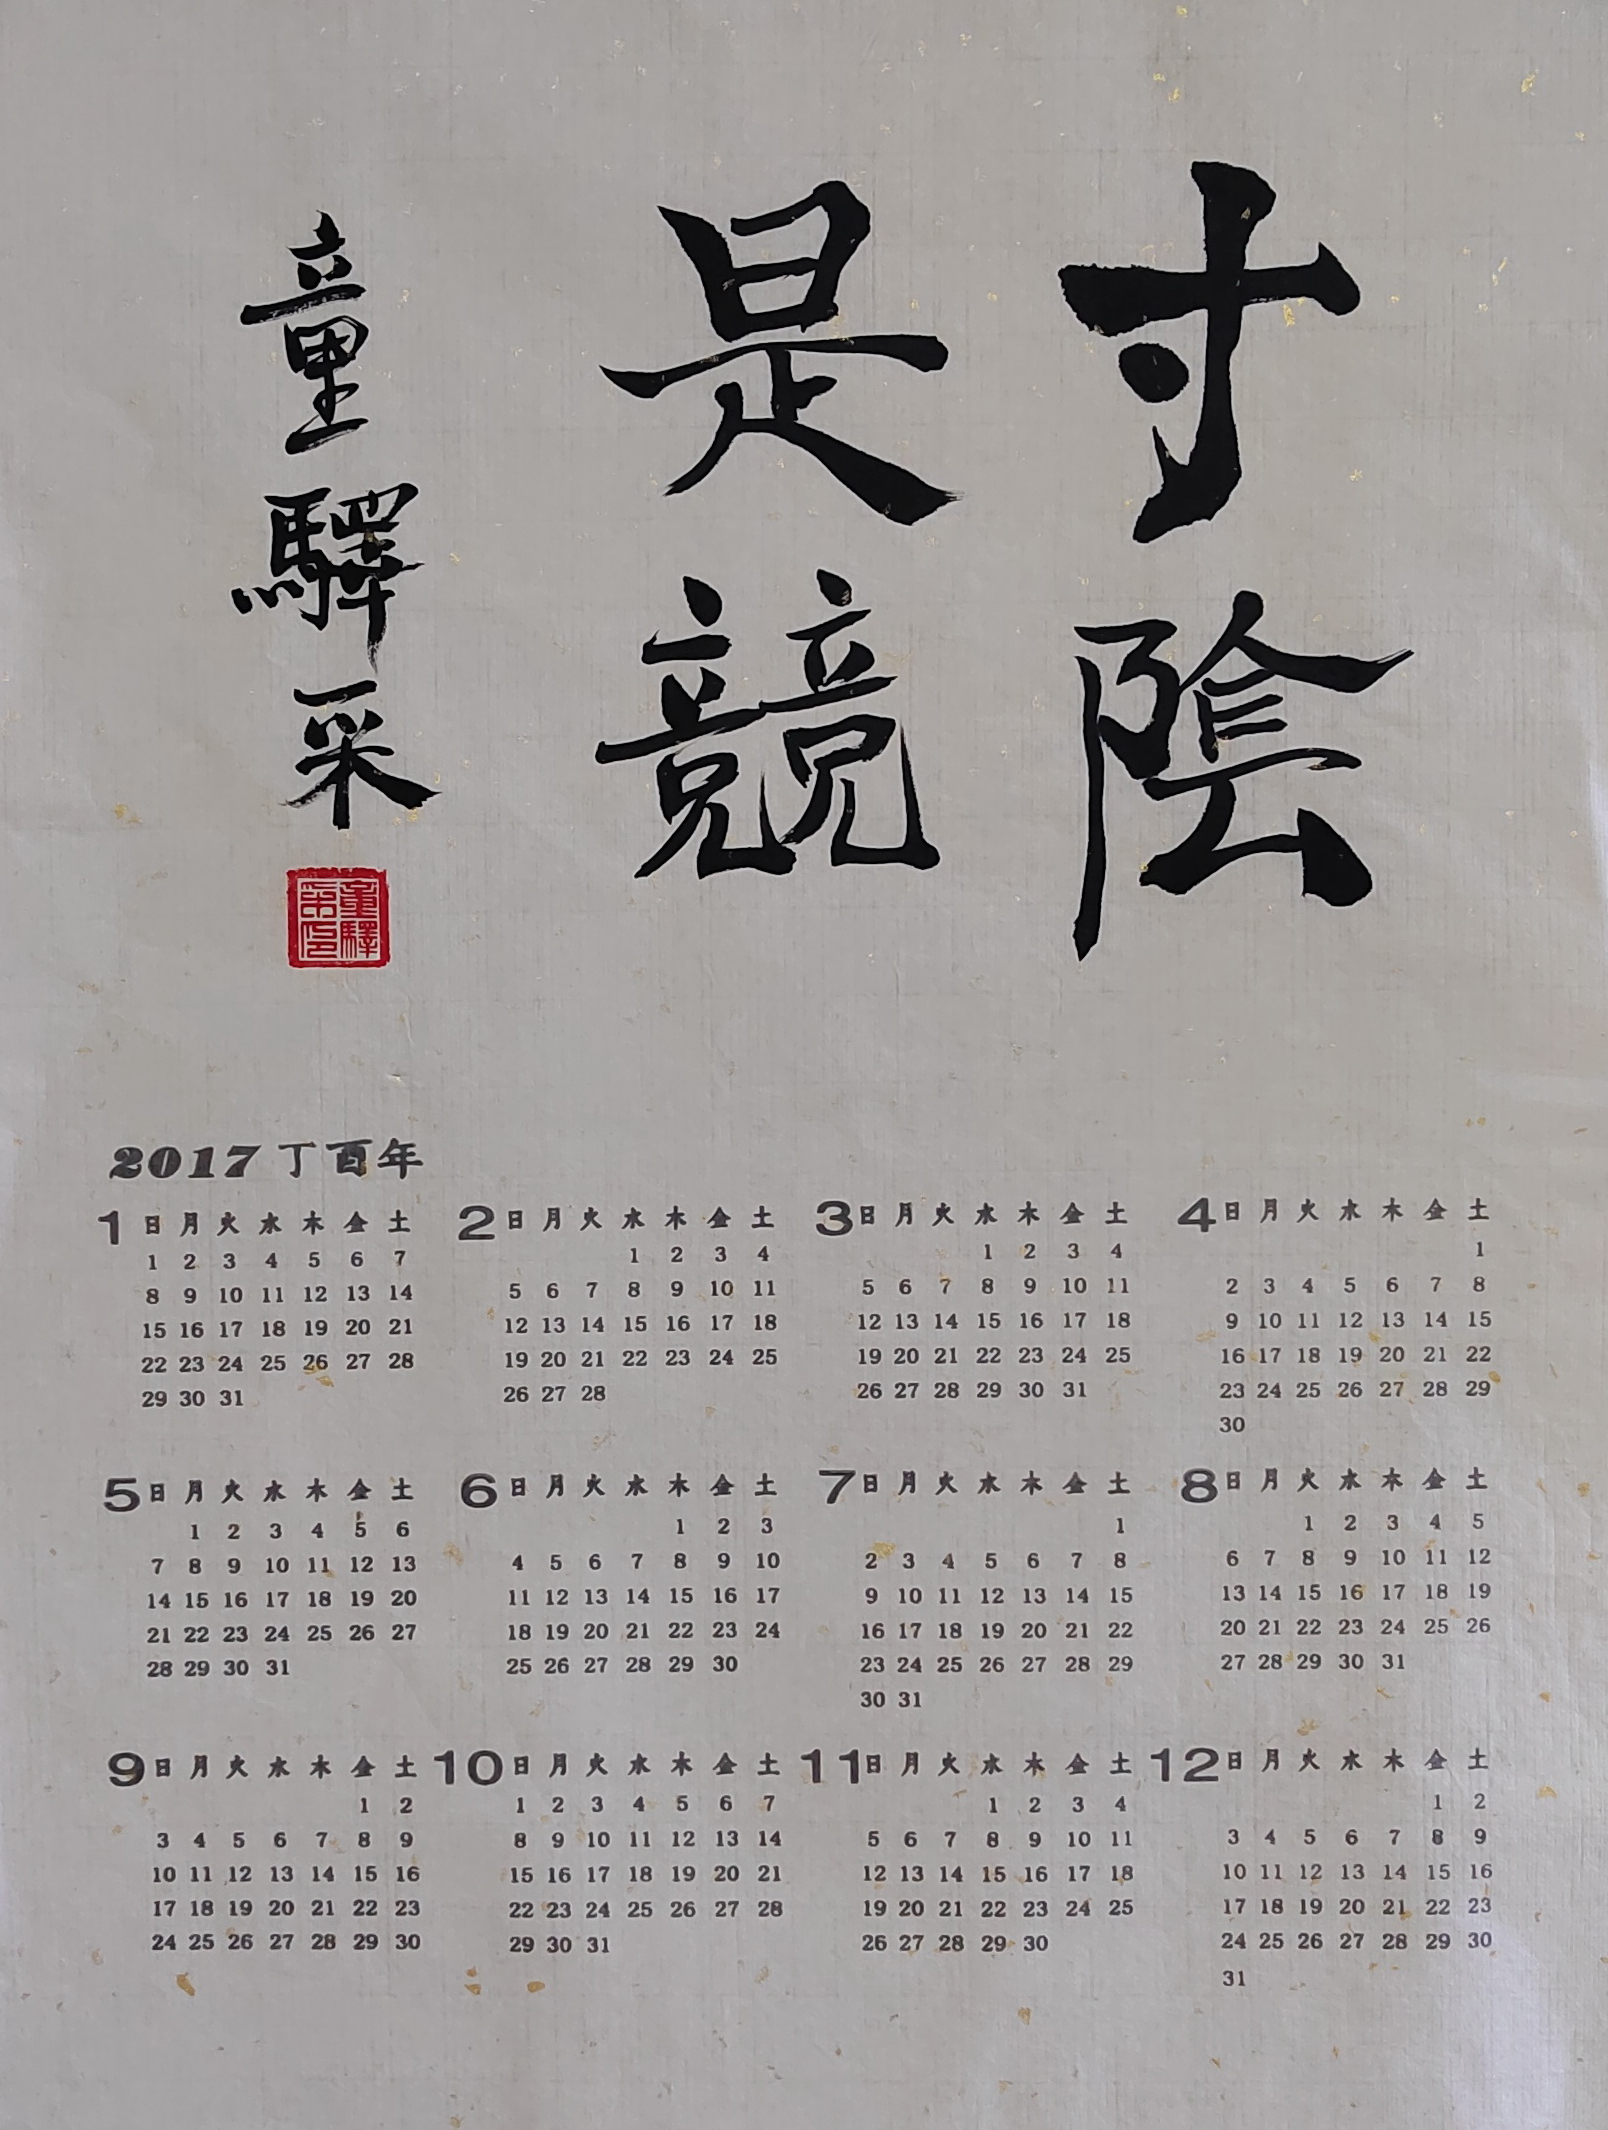 寸陰
是競
童驛采
童驛
采印
2017 丁酉年
1 日 月 火 水 木 金 土
1 2 3 4 5 6 7
8 9 10 11 12 13 14
15 16 17 18 19 20 21
22 23 24 25 26 27 28
29 30 31
2 日 月 火 水 木 金 土
1 2 3 4
5 6 7 8 9 10 11
12 13 14 15 16 17 18
19 20 21 22 23 24 25
26 27 28
3 日 月 火 水 木 金 土
1 2 3 4
5 6 7 8 9 10 11
12 13 14 15 16 17 18
19 20 21 22 23 24 25
26 27 28 29 30 31
4 日 月 火 水 木 金 土
1
2 3 4 5 6 7 8
9 10 11 12 13 14 15
16 17 18 19 20 21 22
23 24 25 26 27 28 29
30
5 日 月 火 水 木 金 土
1 2 3 4 5 6
7 8 9 10 11 12 13
14 15 16 17 18 19 20
21 22 23 24 25 26 27
28 29 30 31
6 日 月 火 水 木 金 土
1 2 3
4 5 6 7 8 9 10
11 12 13 14 15 16 17
18 19 20 21 22 23 24
25 26 27 28 29 30
7 日 月 火 水 木 金 土
1
2 3 4 5 6 7 8
9 10 11 12 13 14 15
16 17 18 19 20 21 22
23 24 25 26 27 28 29
30 31
8 日 月 火 水 木 金 土
1 2 3 4 5
6 7 8 9 10 11 12
13 14 15 16 17 18 19
20 21 22 23 24 25 26
27 28 29 30 31
9 日 月 火 水 木 金 土
1 2
3 4 5 6 7 8 9
10 11 12 13 14 15 16
17 18 19 20 21 22 23
24 25 26 27 28 29 30
10 日 月 火 水 木 金 土
1 2 3 4 5 6 7
8 9 10 11 12 13 14
15 16 17 18 19 20 21
22 23 24 25 26 27 28
29 30 31
11 日 月 火 水 木 金 土
1 2 3 4
5 6 7 8 9 10 11
12 13 14 15 16 17 18
19 20 21 22 23 24 25
26 27 28 29 30
12 日 月 火 水 木 金 土
1 2
3 4 5 6 7 8 9
10 11 12 13 14 15 16
17 18 19 20 21 22 23
24 25 26 27 28 29 30
31